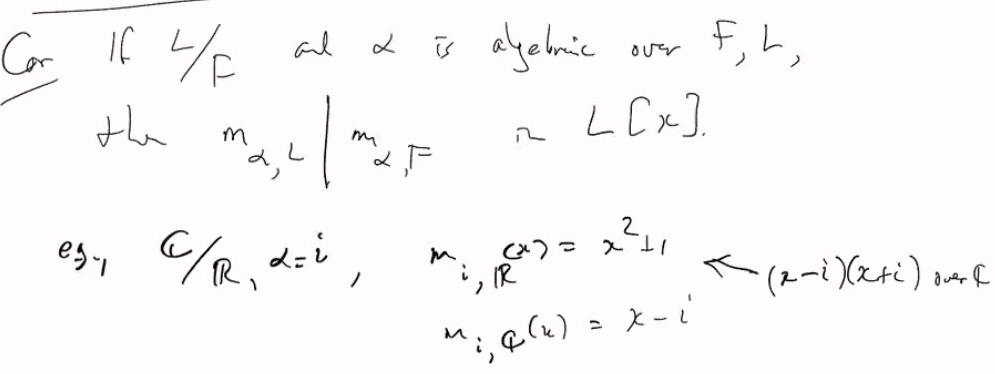 Cor If L/F and α is algebraic over F, L,
then m_{α,L} | m_{α,F} in L[x].
eg., ℂ/ℝ, α=i, m_{i,ℝ}(x) = x²+1 ← (x-i)(x+i) over ℂ
m_{i,ℂ}(x) = x-i